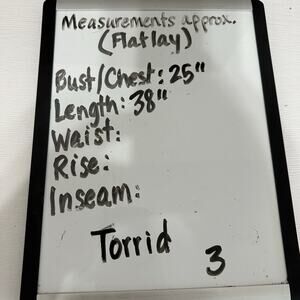 Measurements approx.
(Flat lay)
Bust/Chest: 25"
Length: 38"
Waist:
Rise:
Inseam:
Torrid 3